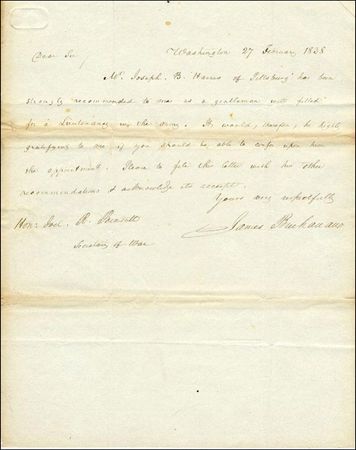 Washington 27 February 1838
Dear Sir,
Mr. Joseph B. Harris of Pittsburg has been
strongly recommended to me as a gentleman well fitted
for a Lieutenancy in the army. It would, therefore, be highly
gratifying to me, if you should be able to confer upon him
the appointment. Please to file this letter with his other
recommendations & acknowledge its receipt.
Yours very respectfully
James Buchanan
Hon: Joel R. Poinsett
Secretary of War